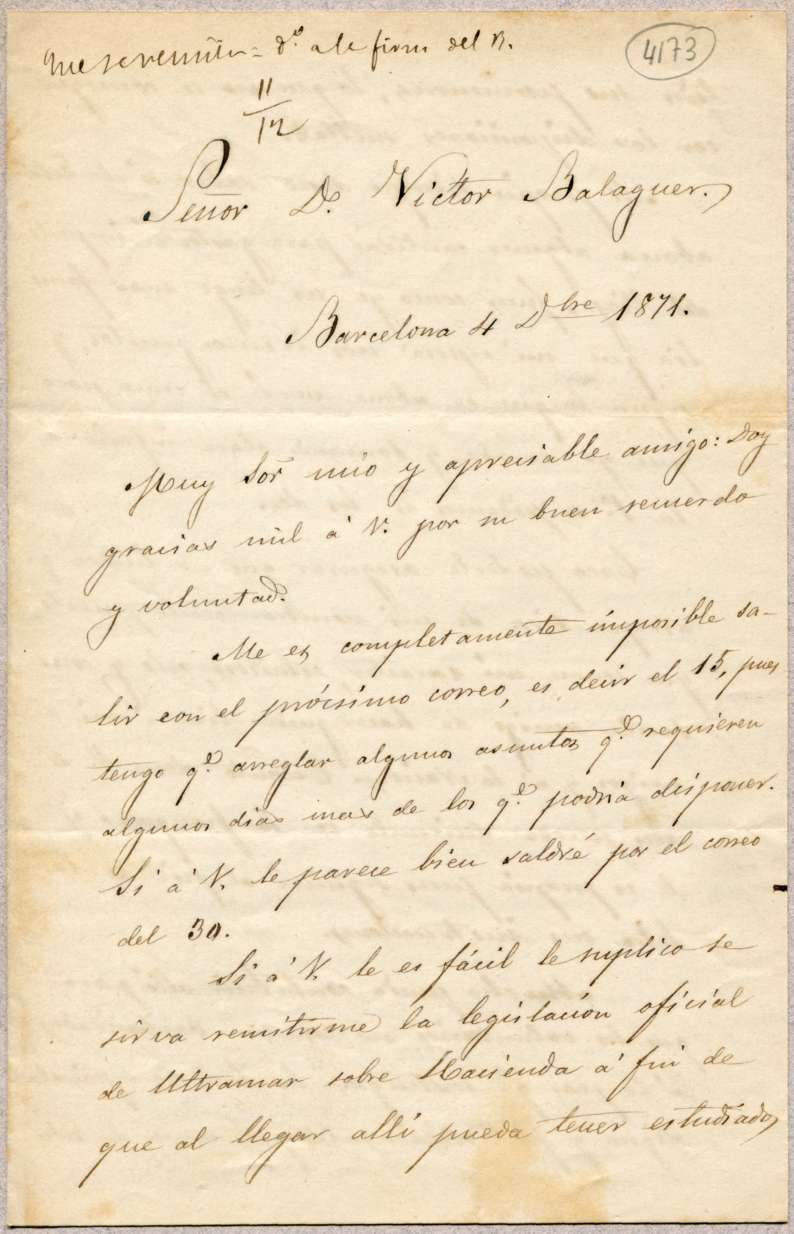 4173
dº. a la firma del R.
11
12
Señor D. Victor Balaguer.
Barcelona 4 Dbre 1871.
Muy Sor mio y apreciable amigo: Doy
gracias mil á V. por su buen recuerdo
y voluntad.
Me es completamente imposible sa-
lir con el prócsimo correo, es decir el 15, pues
tengo qe. arreglar algunos asuntos qe. requieren
algunos dias mas de los qe. podria disponer.
Si á V. le parece bien saldré por el correo
del 30.
Si á V. le es fácil le suplico se
sirva remitirme la legislacion oficial
de Ultramar sobre Hacienda á fin de
que al llegar allí pueda tener estudiados